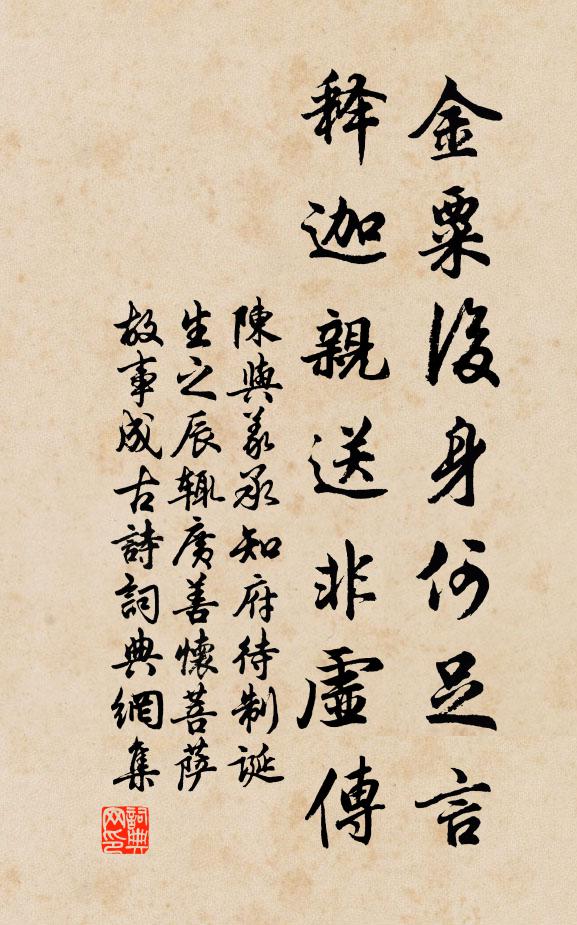 金粟後身何足言
釋迦親送非虛傳
陳與義承知府待制誕
生之辰輒廣善懷菩薩
故事成古詩詞典網集
詞典网印